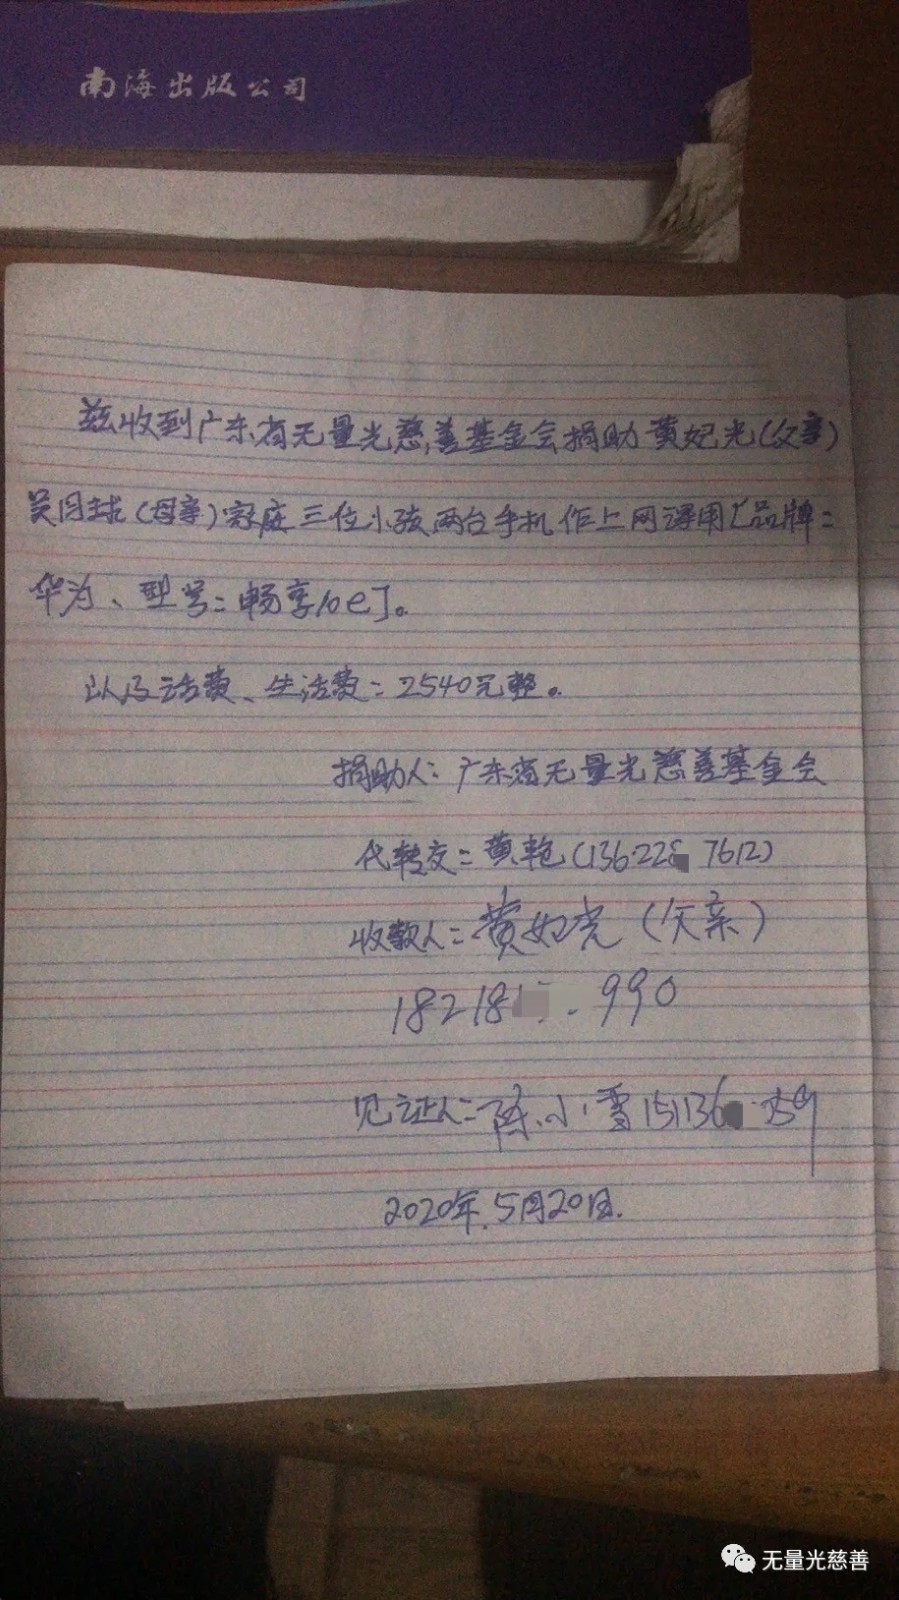 南海出版公司
兹收到广东省无量光慈善基金会捐助黄妃光(父亲)
吴月球(母亲)家庭三位小孩两台手机作上网课用[品牌:
华为、型号:畅享10e]。
以及话费、生活费:2540元整。
捐助人:广东省无量光慈善基金会
代转交:黄艳(136228 7612)
收款人:黄妃光(父亲)
18218 990
见证人:陈小雪15113 59
2020年.5月20日.
无量光慈善